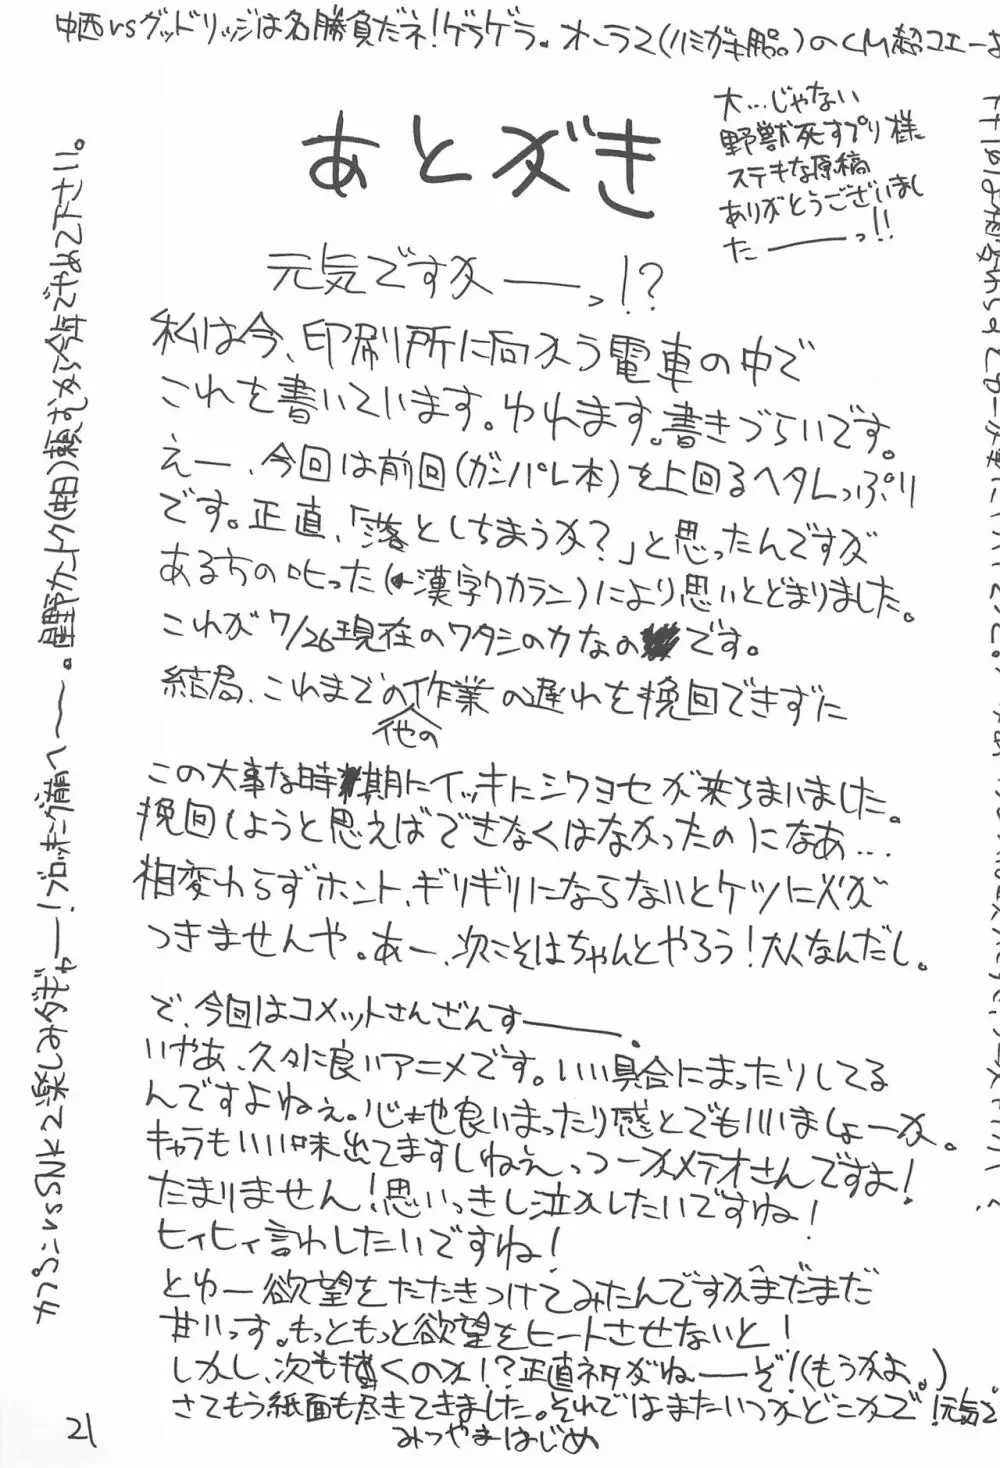 中西vsグッドリッジは名勝負だネ!ゲラゲラ。オーラ2(ハミガキ用品。)のCM超コエーよ
あとがき
大…じゃない
野獣死すプリ様
ステキな原稿
ありがとうございまし
たーーっ!!
元気ですかーーっ!?
私は今、印刷所に向かう電車の中で
これを書いています。ゆれます。書きづらいです。
えー、今回は前回(ガンパレ本)を上回るヘタレっぷり
です。正直、「落としちまうか?」と思ったんですが
ある方の叱った(←漢字ワカラン)により思いとどまりました。
これが7/26現在のワタシの力なのです。
結局、これまでの他の作業の遅れを挽回できずに
この大事な時期にイッキにシワヨセが来ちまいました。
挽回しようと思えばできなくはなかったのになあ…
相変わらずホント、ギリギリにならないとケツに火が
つきませんや。あー、次こそはちゃんとやろう!大人なんだし。
で、今回はコメットさんざんすーーー。
いやあ、久々に良いアニメです。いい具合にまったりしてる
んですよねぇ。心地良いまったり感とでもいいましょーか。
キャラもいい味出てますしねぇっつーかメテオさんですよ!
たまりません!思いっきし泣かしたいですね!
ヒィヒィ言わしたいですね!
とゆー欲望をたたきつけてみたんですがまだまだ
甘いっす。もっともっと欲望をヒートさせないと!
しかし、次も描くのか!?正直ネタがねーーぞ!(もうかよ。)
さてもう紙面も尽きてきました。それではまたいつかどこかで!元気で
みつやまはじめ
カプコンvsSNK2楽しみダギャー!ブロッキング痛へーー。星野カントク(中日)頼むから今年でやめて下さい。
21